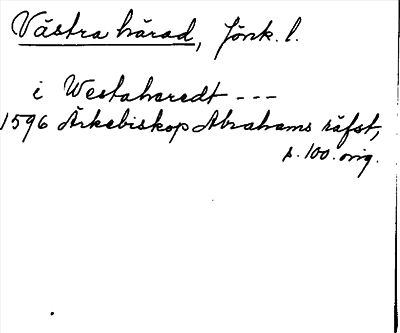 Västra härad, Jönk. l.
i Westaharedt - - -
1596 Ärkebiskop Abrahams räfst,
s. 100. orig.